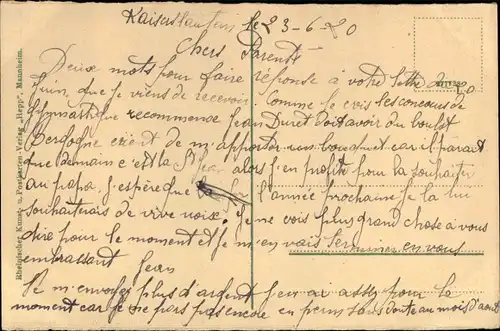 Kaiserslautern le 23-6-20
Chers Parents
Deux mots pour faire réponse à votre lettre du 20
Juin, que je viens de recevoir. Comme je vois les concours de
Gymnastique recommence Jean Duret doit avoir du boulot
vient de m'apporter un bouquet car il parait
que demain c'est la St Jean alors j'en profite pour la souhaiter
au papa, j'espère que l'année prochaine je la lui
souhaiterais de vive voix. Je ne vois plus grand chose a vous
dire pour le moment et je m'en vais terminer en vous
embrassant Jean
Ne m'envoyez plus d'argent j'en ai assez pour le
moment car je ne pars pas encore en perm sans doute au mois d'aout
Rheinischer Kunst- u. Postkarten-Verlag „Hepp", Mannheim.